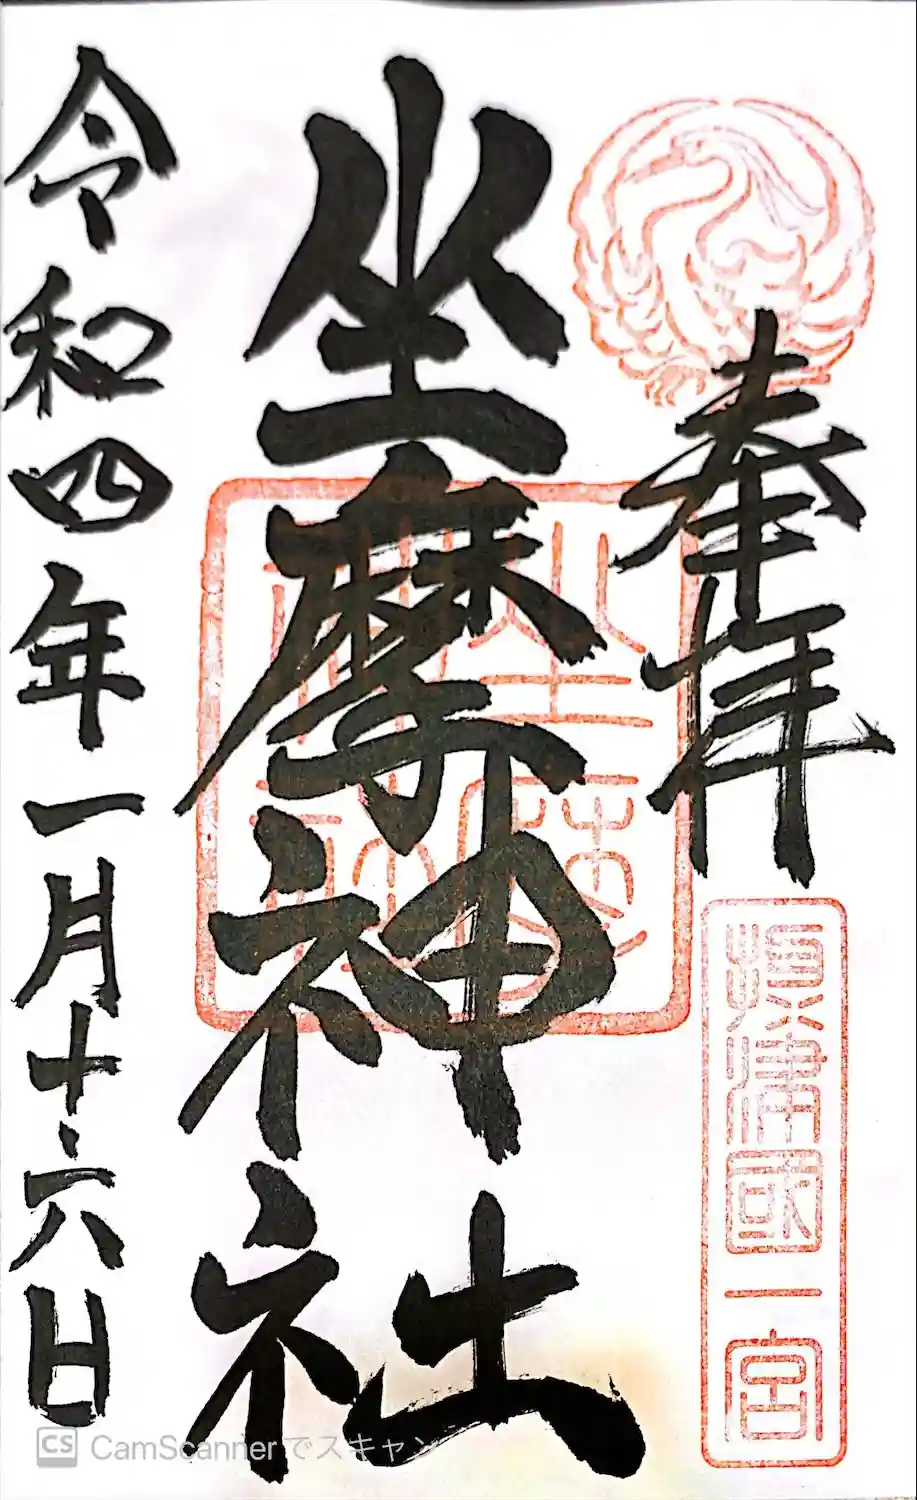 奉拝
摂津國一宮
坐摩神社
坐摩神社
令和四年一月十六日
CS CamScannerでスキャン